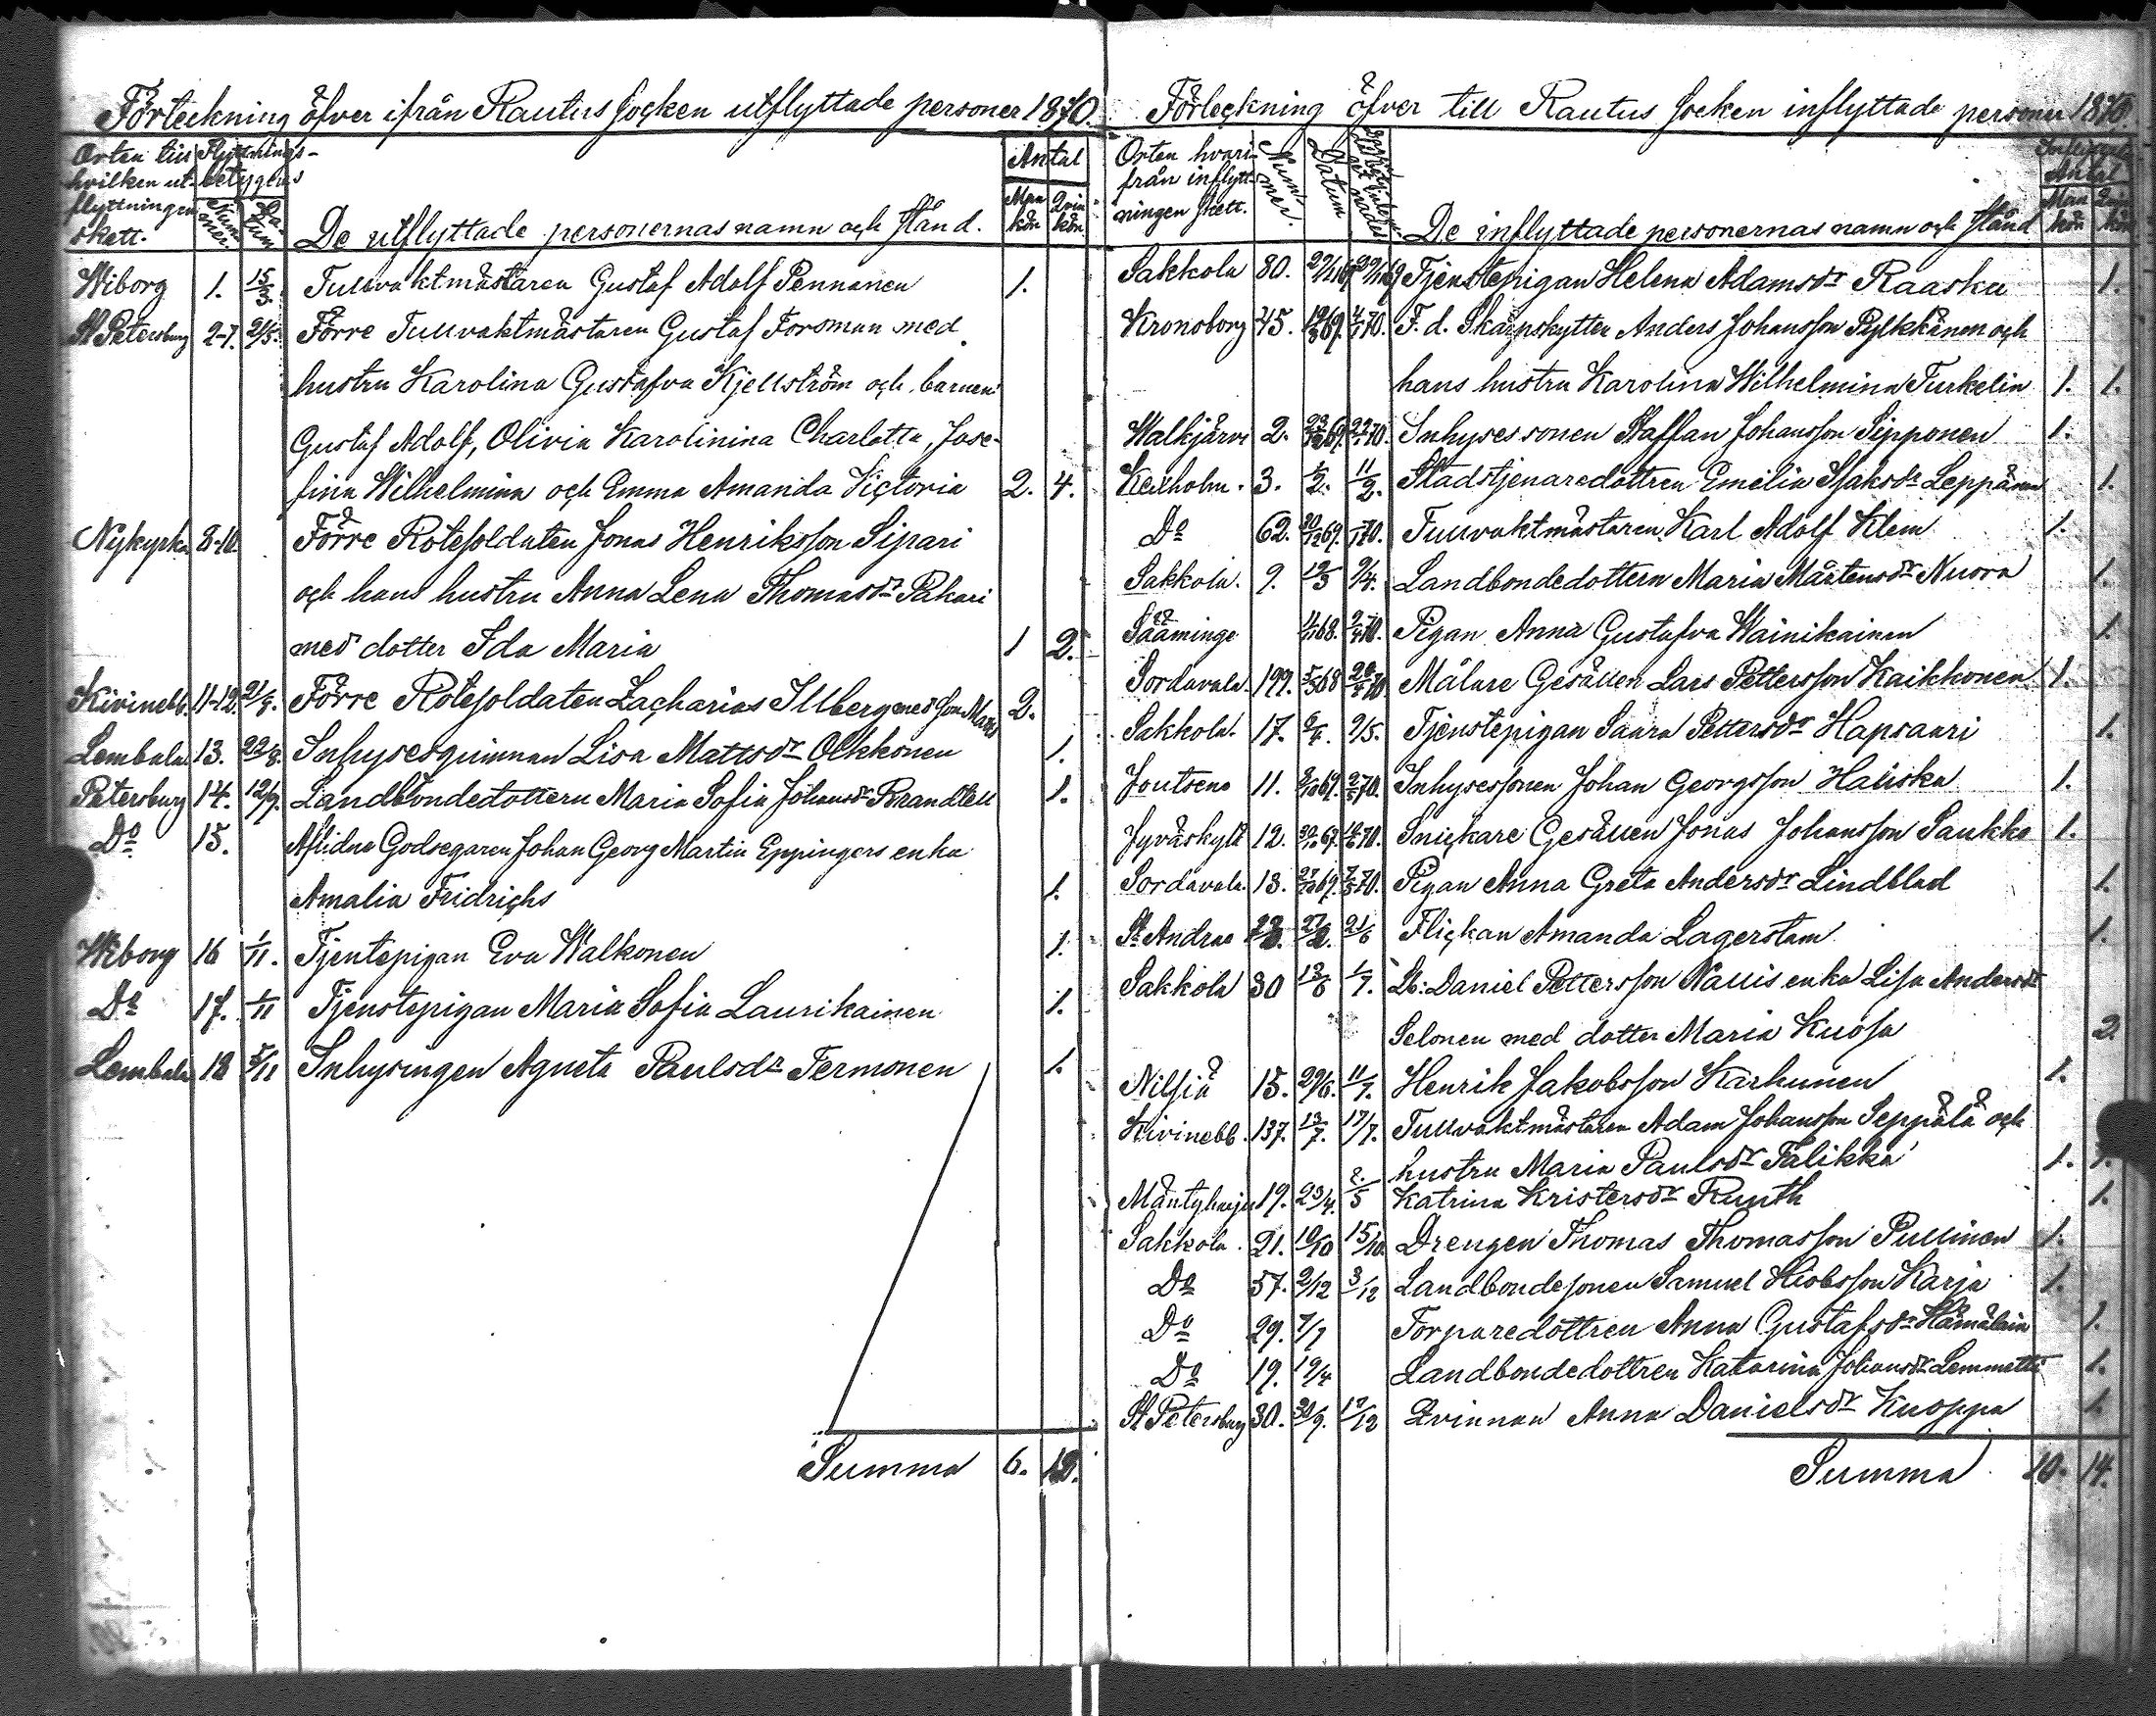 Förteckning öfver ifrån Rautus Socken utflyttade personer 1870.
Orten till hvilken utflyttningen skett. Flyttningsbetygens Nummer. Datum De utflyttade personernas namn och stånd. Antal Man kön Qvin kön.
Wiborg 1. 15/3. Tullvaktmästaren Gustaf Adolf Pennanen 1.
St Petersburg 2-7. 2/5. Förre Tullvaktmästaren Gustaf Forsman med
hustru Karolina Gustafva Kjellström och barnen
Gustaf Adolf, Olivia Karolinina Charlotta, Jose-
fina Wilhelmina och Emma Amanda Victoria 2. 4.
Nykyrka 8-10. Förre Rotesoldaten Jonas Henriksson Sipari
och hans hustru Anna Lena Thomasdr Pakari
med dotter Ida Maria 1 2.
Kivinebb. 11-12. 21/8. Förre Rotesoldaten Zacharias Illberg med son Matts 2.
Lembala 13. 22/8. Inhysesquinnan Lisa Mattsdr Olkkonen 1.
Petersburg 14. 12/9. Landbondedottern Maria Sofia Johansdr Brandtell 1.
Do 15. Aflidna Godsegaren Johan Georg Martin Eppingers enka
Amalia Fridrichs 1.
Wiborg 16 1/11. Tjentepigan Eva Walkonen 1.
Do 17. 1/11 Tjenstepigan Maria Sofia Laurikainen 1.
Lembala 18 5/11 Inhysingen Agneta Paulsdr Termonen 1.
Summa 6. 12.
Förteckning öfver till Rautus Socken inflyttade personer 1870.
Orten hvarifrån inflyttningen skett. Nummer. Datum De inflyttade personernas namn och stånd Antal Man kön Qvin kön
Sakkola 80. 29/1169 Tjenstepigan Helena Adamsdr Raasku 1.
Kronoborg 45. 70. F. d. Skarpskytten Anders Johansson Pylkkänen och
hans hustru Karolina Wilhelmina Turkelin 1. 1.
Walkjärvi 2. 70. Inhyses sonen Staffan Johansson Sipponen 1.
Kexholm. 3. 1/2. 11/2. Stadstjenaredottren Emelia Isaksdr Leppänen 1.
Do 62. 30/1269. 70. Tullvaktmästaren Karl Adolf Klem 1.
Sakkola. 9. 19/3 9/4. Landbondedottern Maria Mårtensdr Nuora 1.
Sääminge 68. 70. Pigan Anna Gustafva Wainikainen 1.
Sordavala. 199. 68 70 Målare Gesällen Lars Pettersson Kaikkonen 1.
Sakkola. 17. 2/5. Tjenstepigan Saara Pettersdr Hapsaari 1.
Joutseno 11. 69. 70. Inhysessonen Johan Georgsson Haliska 1.
Jyväskylä 12. 67. 70. Snickare Gesällen Jonas Johansson Saukko 1.
Sordavala. 13. 69. 70. Pigan Anna Greta Andersdr Lindblad 1.
St Andrae 21/6 Flickan Amanda Lagerstam 1.
Sakkola 30 13/6 1/7. Lb: Daniel Pettersson Nallis enka Lisa Andersdr
Selonen med dotter Maria Kuosa 2
Nilsiä 15. 29/6. 11/7. Henrik Jakobsson Karhunen 1.
Kivinebb. 137. 13/7. 17/7. Tullvaktmästaren Adam Johansson Seppälä och
hustru Maria Paulsdr Talikka 1. 1.
Mäntyharju 19. 23/4. 2/5 Katrina Kristersdr Ruuth 1.
Sakkola. 21. 10/10 15/10 Drengen Thomas Thomasson Pullinen 1.
Do 57. 2/12 3/12 Landbondesonen Samuel Jakobsson Karja 1.
Do 29. 7/7 Torparedottren Anna Gustafsdr Hämäläin 1.
Do 19. 19/4 Landbondedottren Katarina Johansdr Lemmetti 1.
St Petersburg 30. 30/9. 17/12 Qvinnan Anna Danielsdr Kuoppa 1
Summa 10. 14.